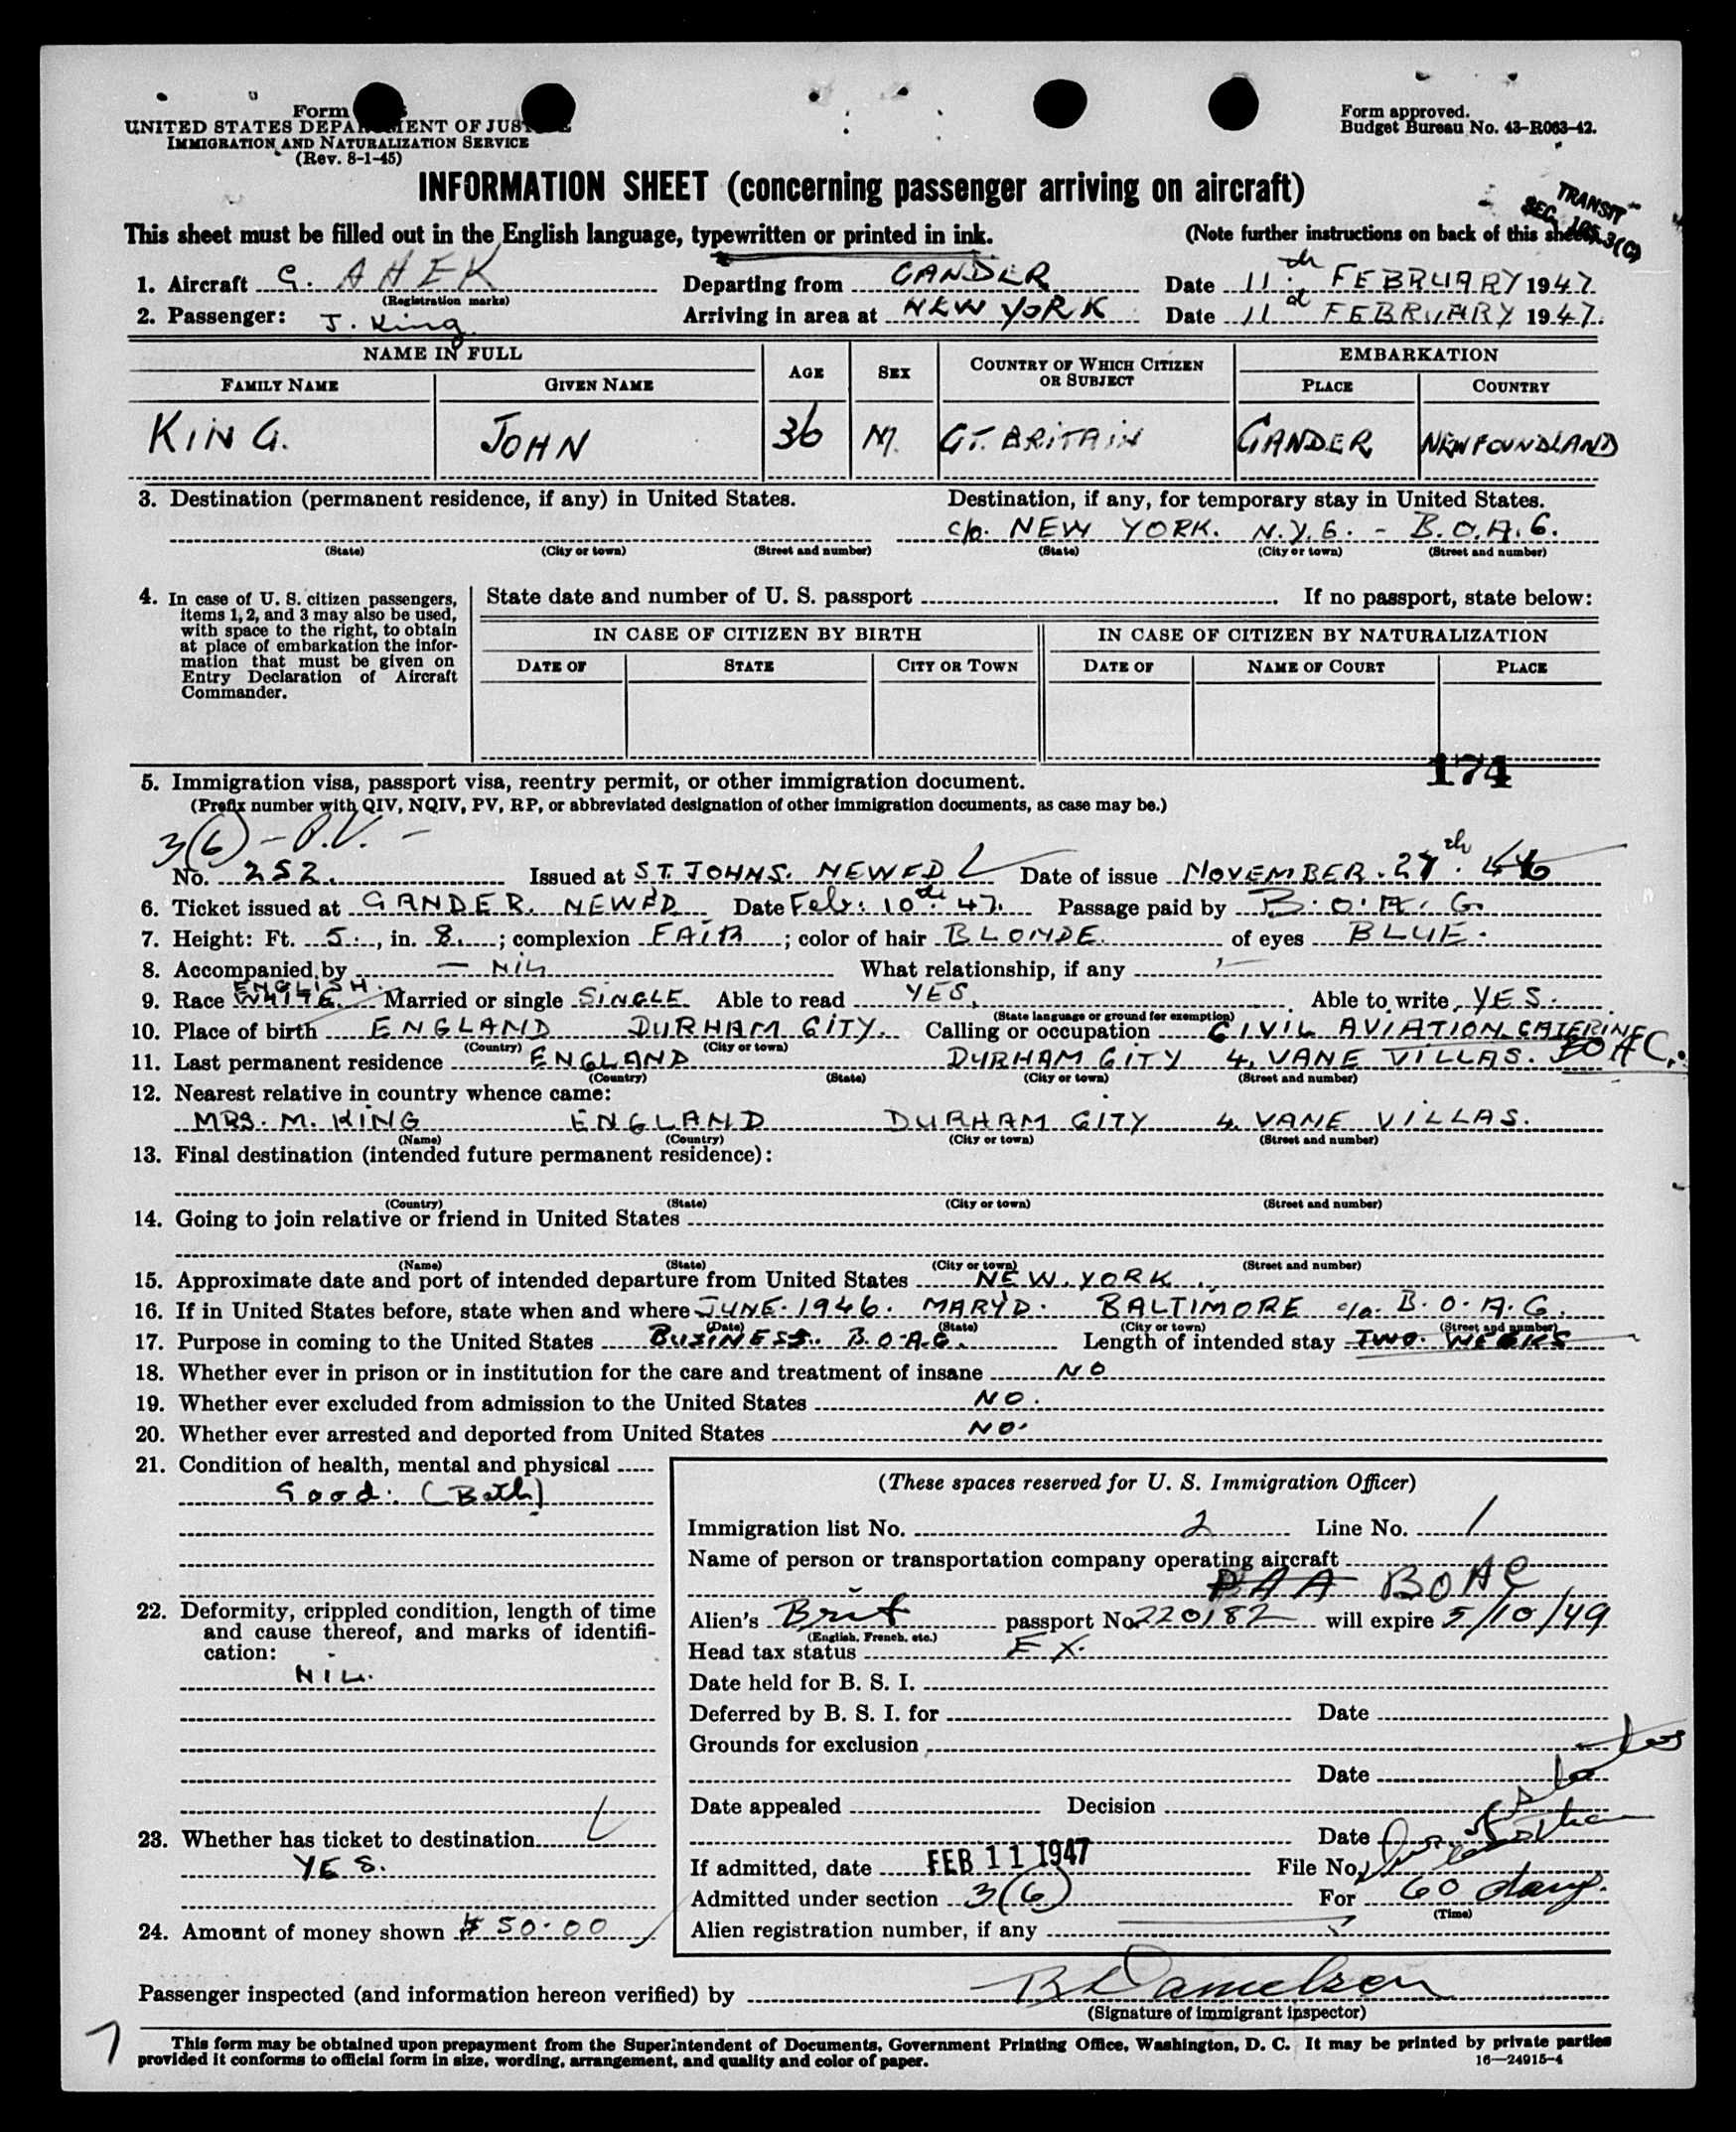 Form
UNITED STATES DEPARTMENT OF JUSTICE
IMMIGRATION AND NATURALIZATION SERVICE
(Rev. 8-1-45)
Form approved.
Budget Bureau No. 43-R063-42.
INFORMATION SHEET (concerning passenger arriving on aircraft)
TRANSIT
SEC. 3(C)
This sheet must be filled out in the English language, typewritten or printed in ink. (Note further instructions on back of this sheet.)
1. Aircraft G. AHEK Departing from GANDER Date 11th FEBRUARY 1947.
(Registration marks)
2. Passenger: J. King Arriving in area at NEW YORK Date 11 FEBRUARY 1947.
NAME IN FULL AGE SEX COUNTRY OF WHICH CITIZEN OR SUBJECT EMBARKATION
FAMILY NAME GIVEN NAME PLACE COUNTRY
KING. JOHN 36 M. GT. BRITAIN GANDER NEWFOUNDLAND
3. Destination (permanent residence, if any) in United States. Destination, if any, for temporary stay in United States.
c/o. NEW YORK. N.Y.C. - B.O.A.C.
(State) (City or town) (Street and number) (State) (City or town) (Street and number)
4. In case of U. S. citizen passengers, items 1, 2, and 3 may also be used, with space to the right, to obtain at place of embarkation the information that must be given on Entry Declaration of Aircraft Commander.
State date and number of U. S. passport If no passport, state below:
IN CASE OF CITIZEN BY BIRTH IN CASE OF CITIZEN BY NATURALIZATION
DATE OF STATE CITY OR TOWN DATE OF NAME OF COURT PLACE
174
5. Immigration visa, passport visa, reentry permit, or other immigration document.
(Prefix number with QIV, NQIV, PV, RP, or abbreviated designation of other immigration documents, as case may be.)
3(6) - P.V. -
No. 252. Issued at ST. JOHNS. NEWFD Date of issue NOVEMBER. 27th. 46
6. Ticket issued at GANDER. NEWFD Date Feb: 10th. 47. Passage paid by B.O.A.C.
7. Height: Ft. 5., in. 8.; complexion FAIR; color of hair BLONDE. of eyes BLUE.
8. Accompanied by - NIL What relationship, if any -
ENGLISH.
9. Race WHITE. Married or single SINGLE Able to read YES. Able to write YES.
(State language or ground for exemption)
10. Place of birth ENGLAND DURHAM CITY. Calling or occupation CIVIL AVIATION CATERING
(Country) (City or town) BOAC.
11. Last permanent residence ENGLAND DURHAM CITY 4. VANE VILLAS.
(Country) (State) (City or town) (Street and number)
12. Nearest relative in country whence came:
MRS. M. KING ENGLAND DURHAM CITY 4. VANE VILLAS.
(Name) (Country) (City or town) (Street and number)
13. Final destination (intended future permanent residence):
(Country) (State) (City or town) (Street and number)
14. Going to join relative or friend in United States
(Name) (State) (City or town) (Street and number)
15. Approximate date and port of intended departure from United States NEW. YORK.
16. If in United States before, state when and where JUNE. 1946. MARY'D. BALTIMORE c/o. B.O.A.C.
(Date) (State) (City or town) (Street and number)
17. Purpose in coming to the United States BUSINESS. B.O.A.C. Length of intended stay TWO. WEEKS
18. Whether ever in prison or in institution for the care and treatment of insane NO
19. Whether ever excluded from admission to the United States NO.
20. Whether ever arrested and deported from United States NO.
21. Condition of health, mental and physical
Good. (Both)
22. Deformity, crippled condition, length of time and cause thereof, and marks of identification:
NIL.
23. Whether has ticket to destination
YES.
24. Amount of money shown $ 50.00
(These spaces reserved for U. S. Immigration Officer)
Immigration list No. 2 Line No. 1
Name of person or transportation company operating aircraft
PAA BOAC
Alien's Brit passport No. 220182 will expire 5/10/49
(English, French, etc.)
Head tax status EX.
Date held for B. S. I.
Deferred by B. S. I. for Date
Grounds for exclusion
Date
Date appealed Decision
Date
If admitted, date FEB 11 1947 File No.
Admitted under section 3(6) For 60 days.
(Time)
Alien registration number, if any
Passenger inspected (and information hereon verified) by R Danielson
(Signature of immigrant inspector)
7
This form may be obtained upon prepayment from the Superintendent of Documents, Government Printing Office, Washington, D. C. It may be printed by private parties
provided it conforms to official form in size, wording, arrangement, and quality and color of paper. 16—24915-4